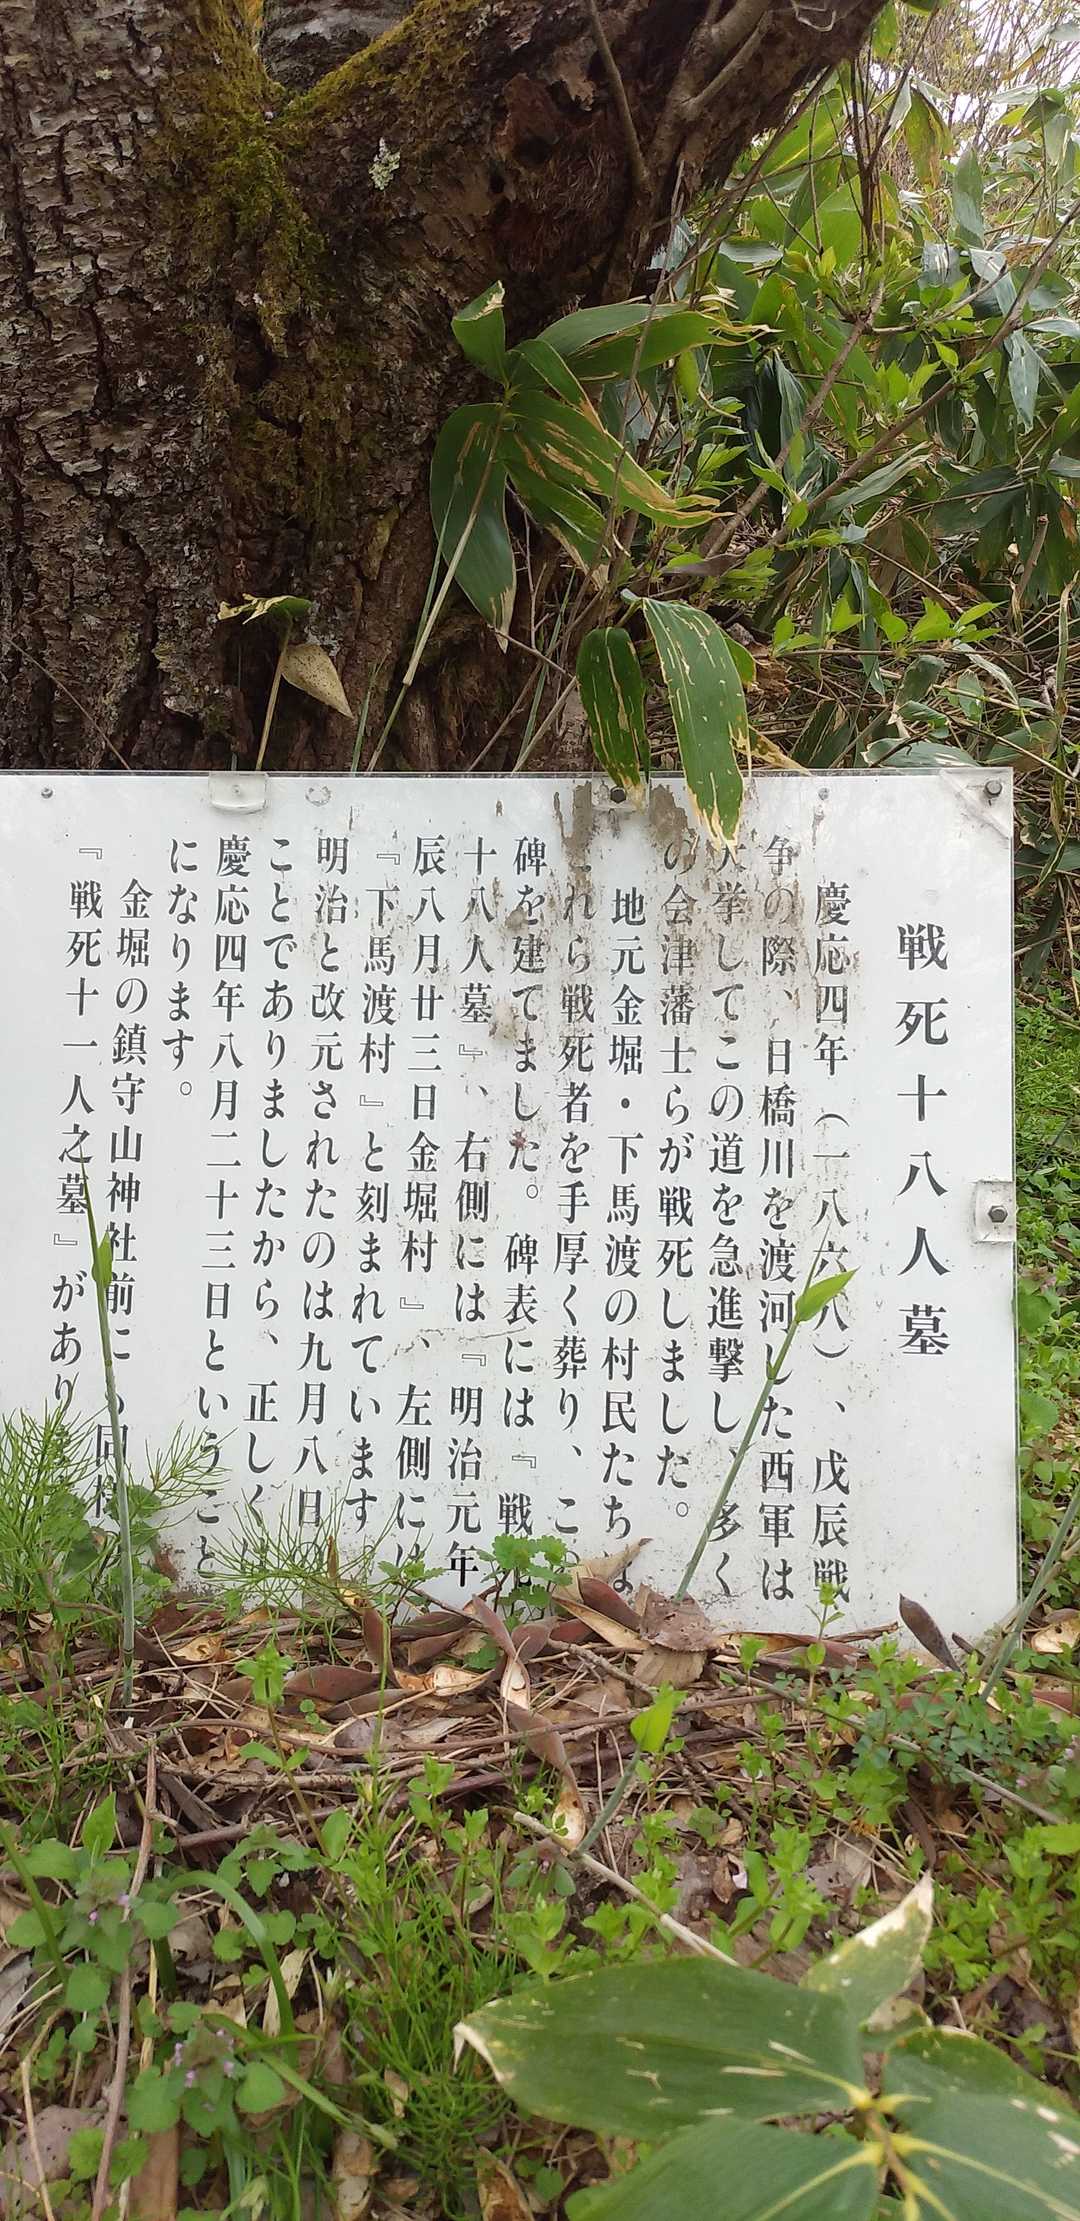 戦死十八人墓
慶応四年（一八六八）、戊辰戦
争の際、日橋川を渡河した西軍は
大挙してこの道を急進撃し、多く
の会津藩士らが戦死しました。
地元金堀・下馬渡の村民たちは
これら戦死者を手厚く葬り、この
碑を建てました。碑表には『戦死
十八人墓』、右側には『明治元年
辰八月廿三日金堀村』、左側には
『下馬渡村』と刻まれています
明治と改元されたのは九月八日の
ことでありましたから、正しくは
慶応四年八月二十三日ということ
になります。
金堀の鎮守山神社前にも同様の
『戦死十一人之墓』があり